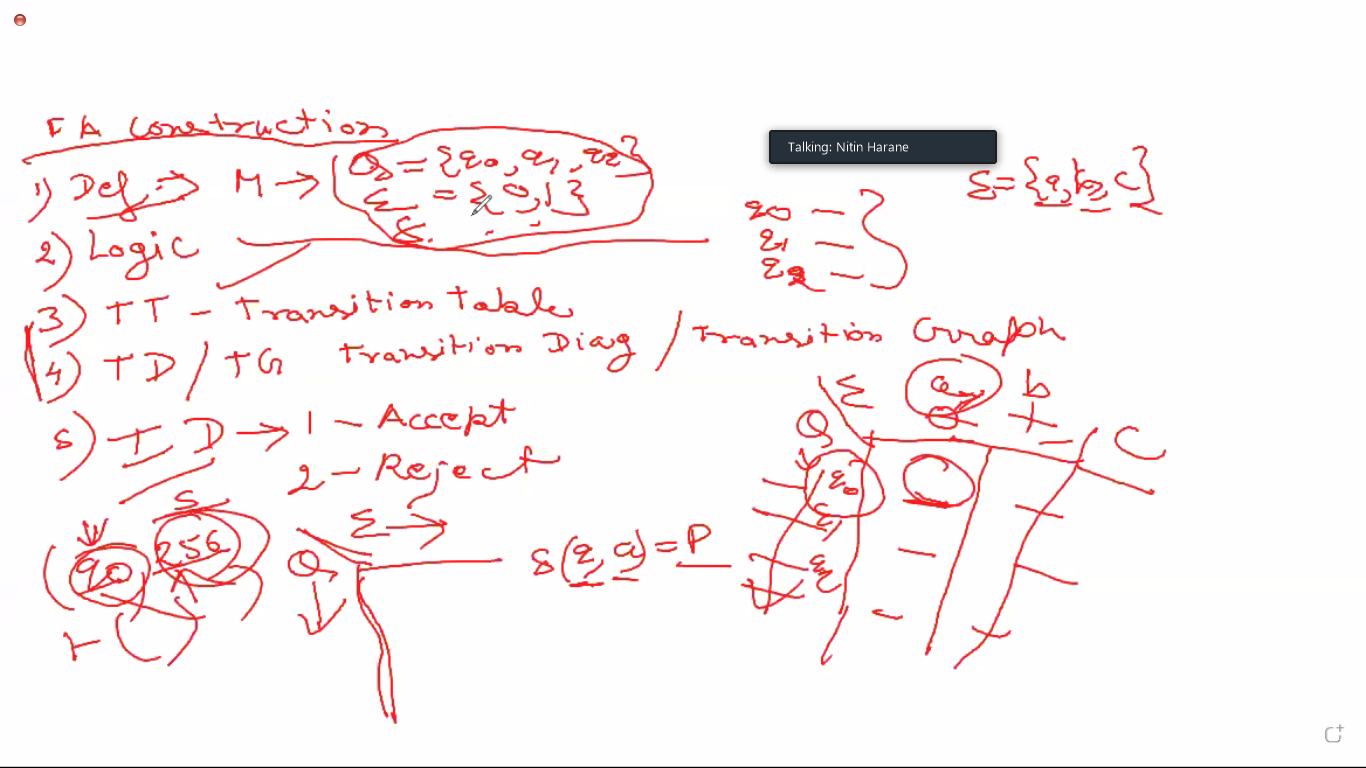 FA Construction
1) Def ⇒ M → Q = {q0, q1, q2}
Σ = {0, 1}
δ
2) Logic
3) TT - Transition Table
4) TD / TG Transition Diag / Transition Graph
5) ID → 1 - Accept
2 - Reject
Talking: Nitin Harane
q0 -
q1 -
q2 -
Σ = {a, b, c}
S
(q0 256)
⊢ ( )
Σ →
Q
δ(q, a) = P
Σ a b c
Q
q0
q1
q2